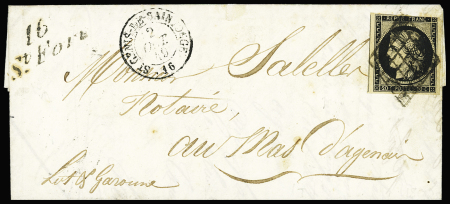 16
St Fort
ST GENIS-DE-SAINTONGE
2
16
REPUB. FRANC.
Monsieur Saleller
Notaire,
au Mas d'agenais
Lot & Garonne